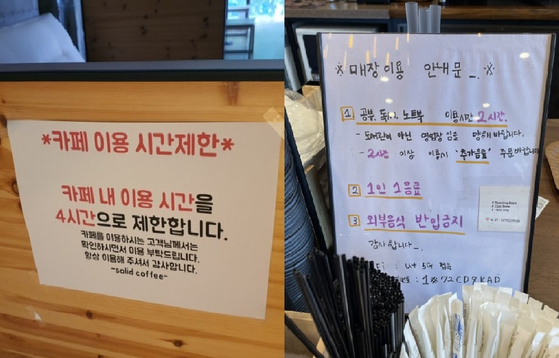 *카페 이용 시간제한*
카페 내 이용 시간을
4시간으로 제한합니다.
카페을 이용하시는 고객님께서는
확인하시면서 이용 부탁드립니다.
항상 이용해 주셔서 감사합니다.
~solid coffee~
※ 매장이용 안내문 ※
1 공부, 독서, 노트북 이용시간 2시간.
- 도서관이 아닌 영업장 임을 양해 바랍니다.
- 2시간 이상 이용시 "추가음료" 주문바랍니다.
2 1인 1음료
3 외부음식 반입금지
감사합니다.
: U+ 5G